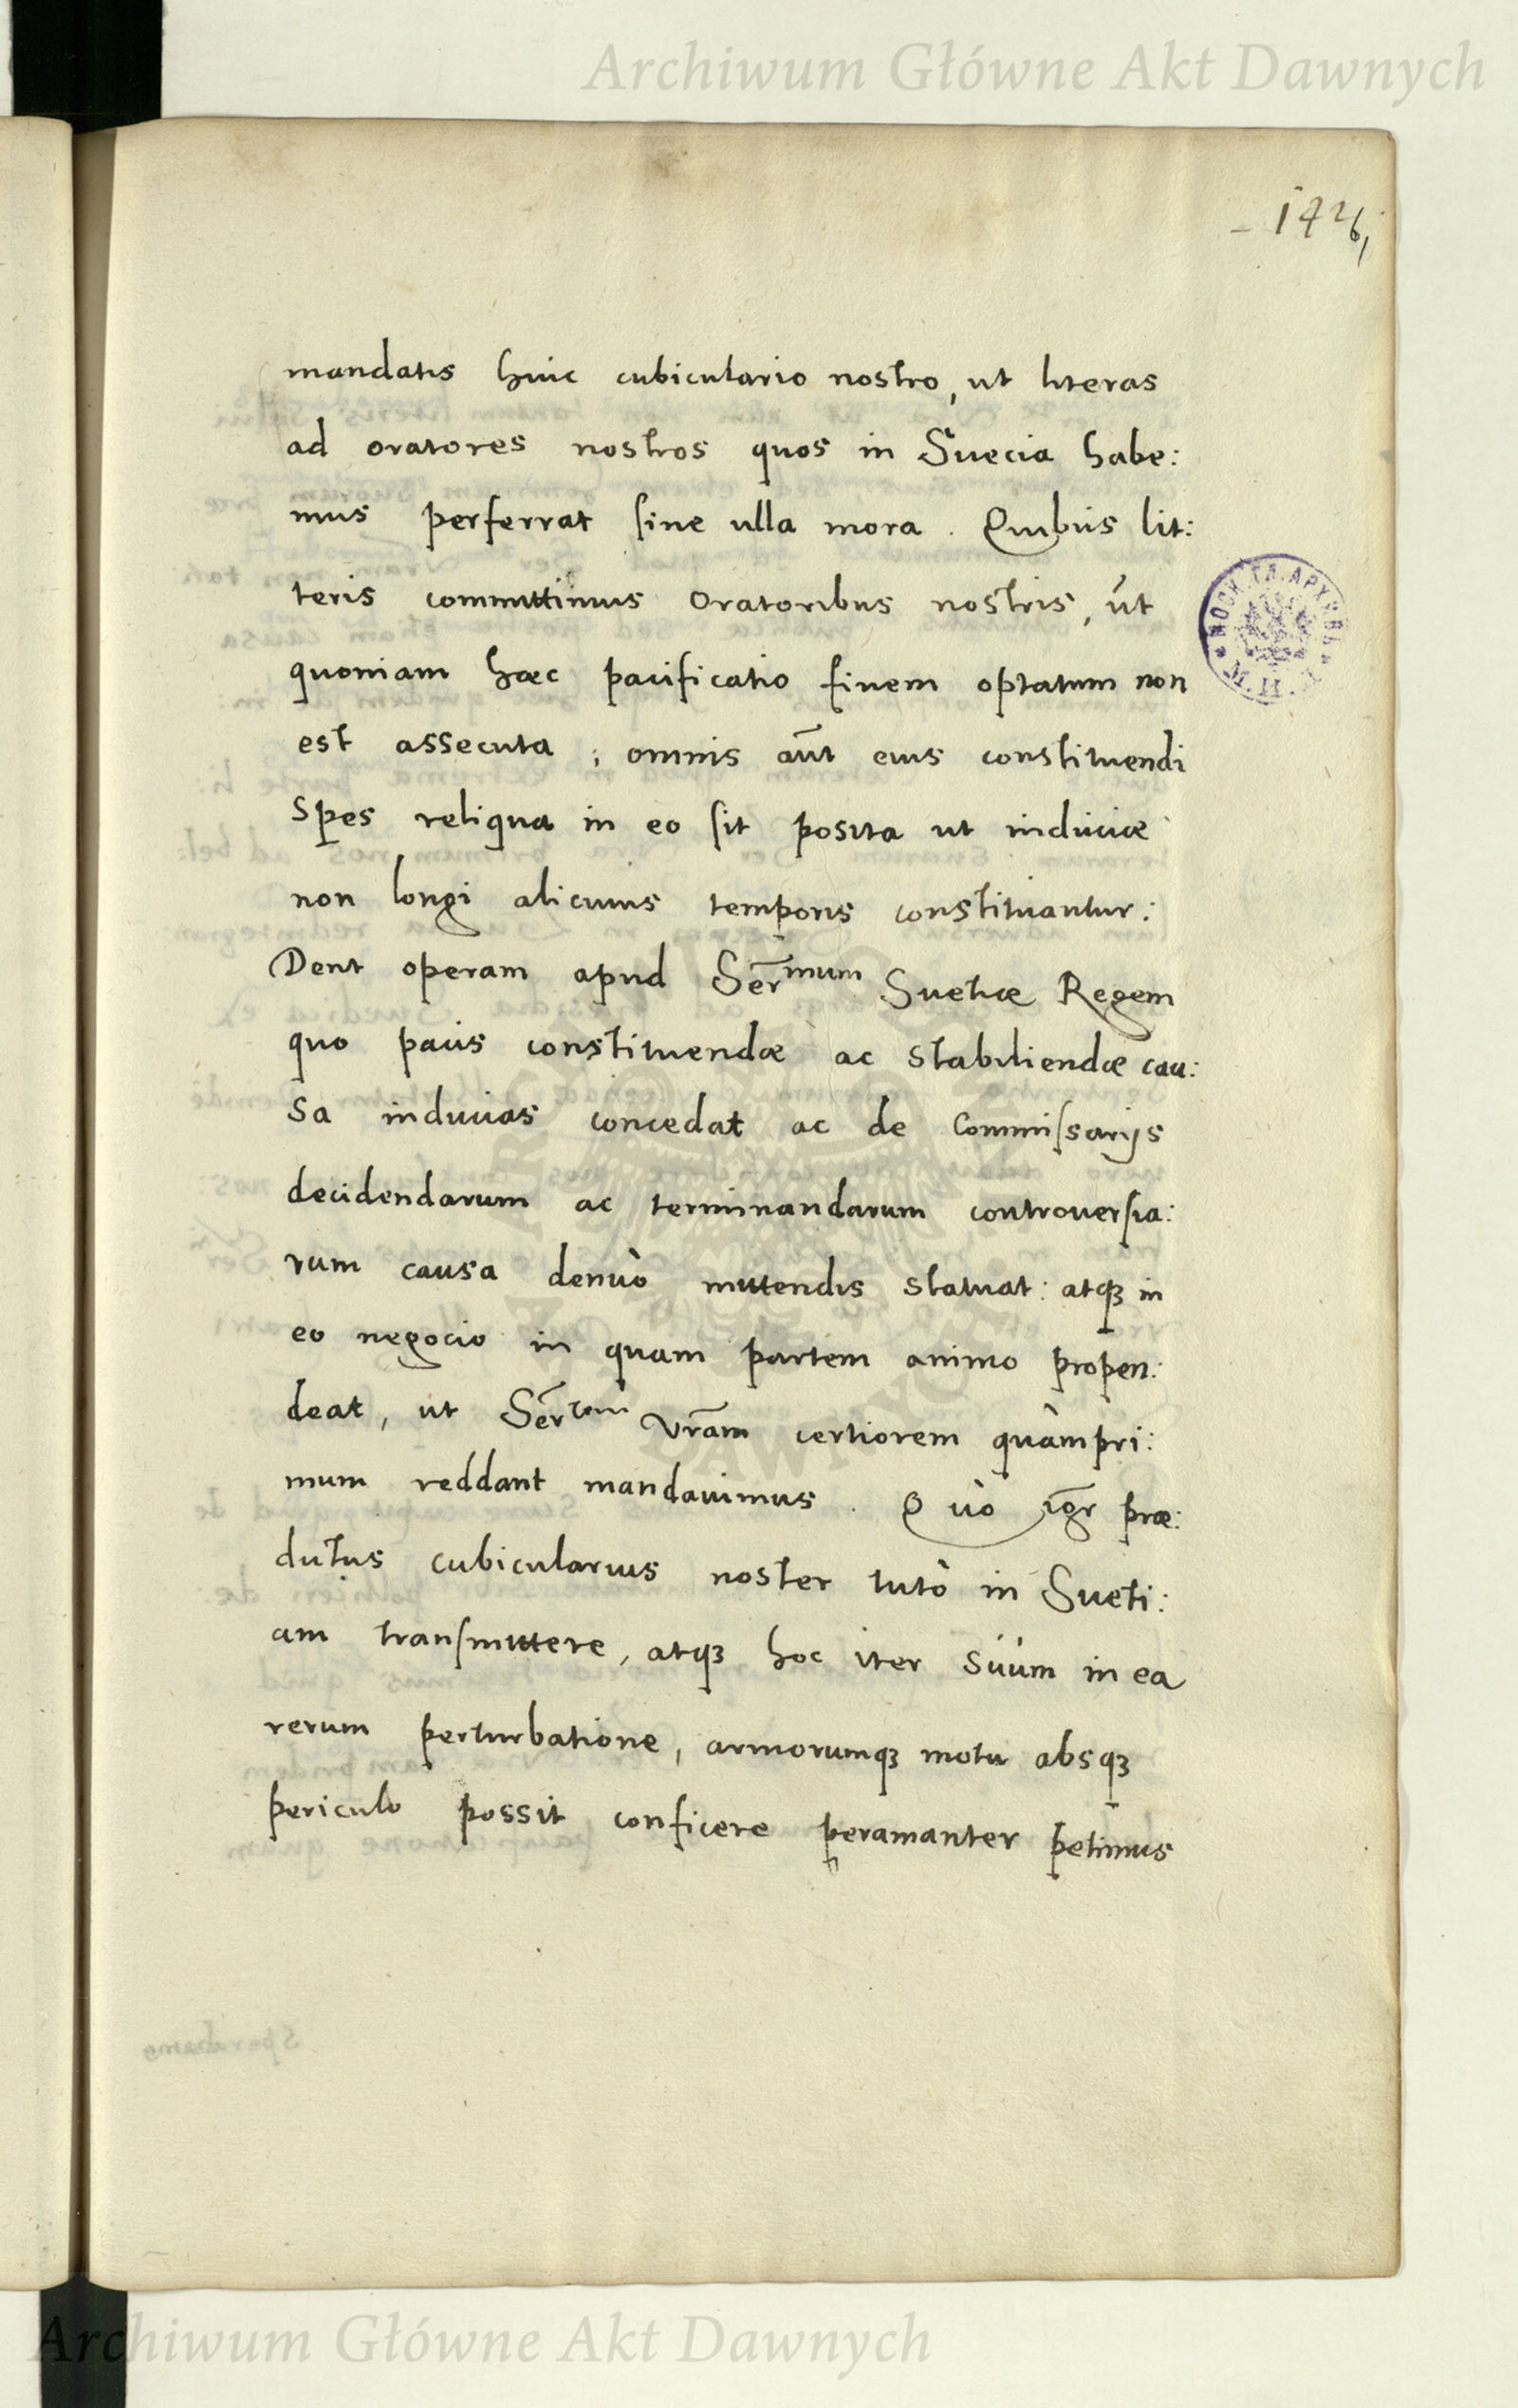 Archiwum Główne Akt Dawnych
mandatis huic cubiculario nostro, ut literas
ad oratores nostros quos in Suecia habe:
mus perferrat sine ulla mora. Quibus lit:
teris committimus oratoribus nostris, ut
quoniam hæc pacificatio finem optatum non
est assecuta; omnis aūt eius constituendi
spes reliqua in eo sit posita ut induciæ
non longi alicuius temporis constituantur:
Dent operam apud Ser̄mum Suetiæ Regem
quo pacis constituendæ ac stabiliendæ cau:
sa inducias concedat ac de Commissarijs
decidendarum ac terminandarum controuersia:
rum causa denuò mittendis statuat: atqꝫ in
eo negocio in quam partem animo propen:
deat, ut Ser̄tem Vrām certiorem quàmpri:
mum reddant mandauimus. Quò igr̄ præ:
dictus cubicularius noster tutò in Sueti:
am transmittere, atqꝫ hoc iter suum in ea
rerum perturbatione, armorumqꝫ motu absqꝫ
periculo possit conficere peramanter petimus
Archiwum Główne Akt Dawnych